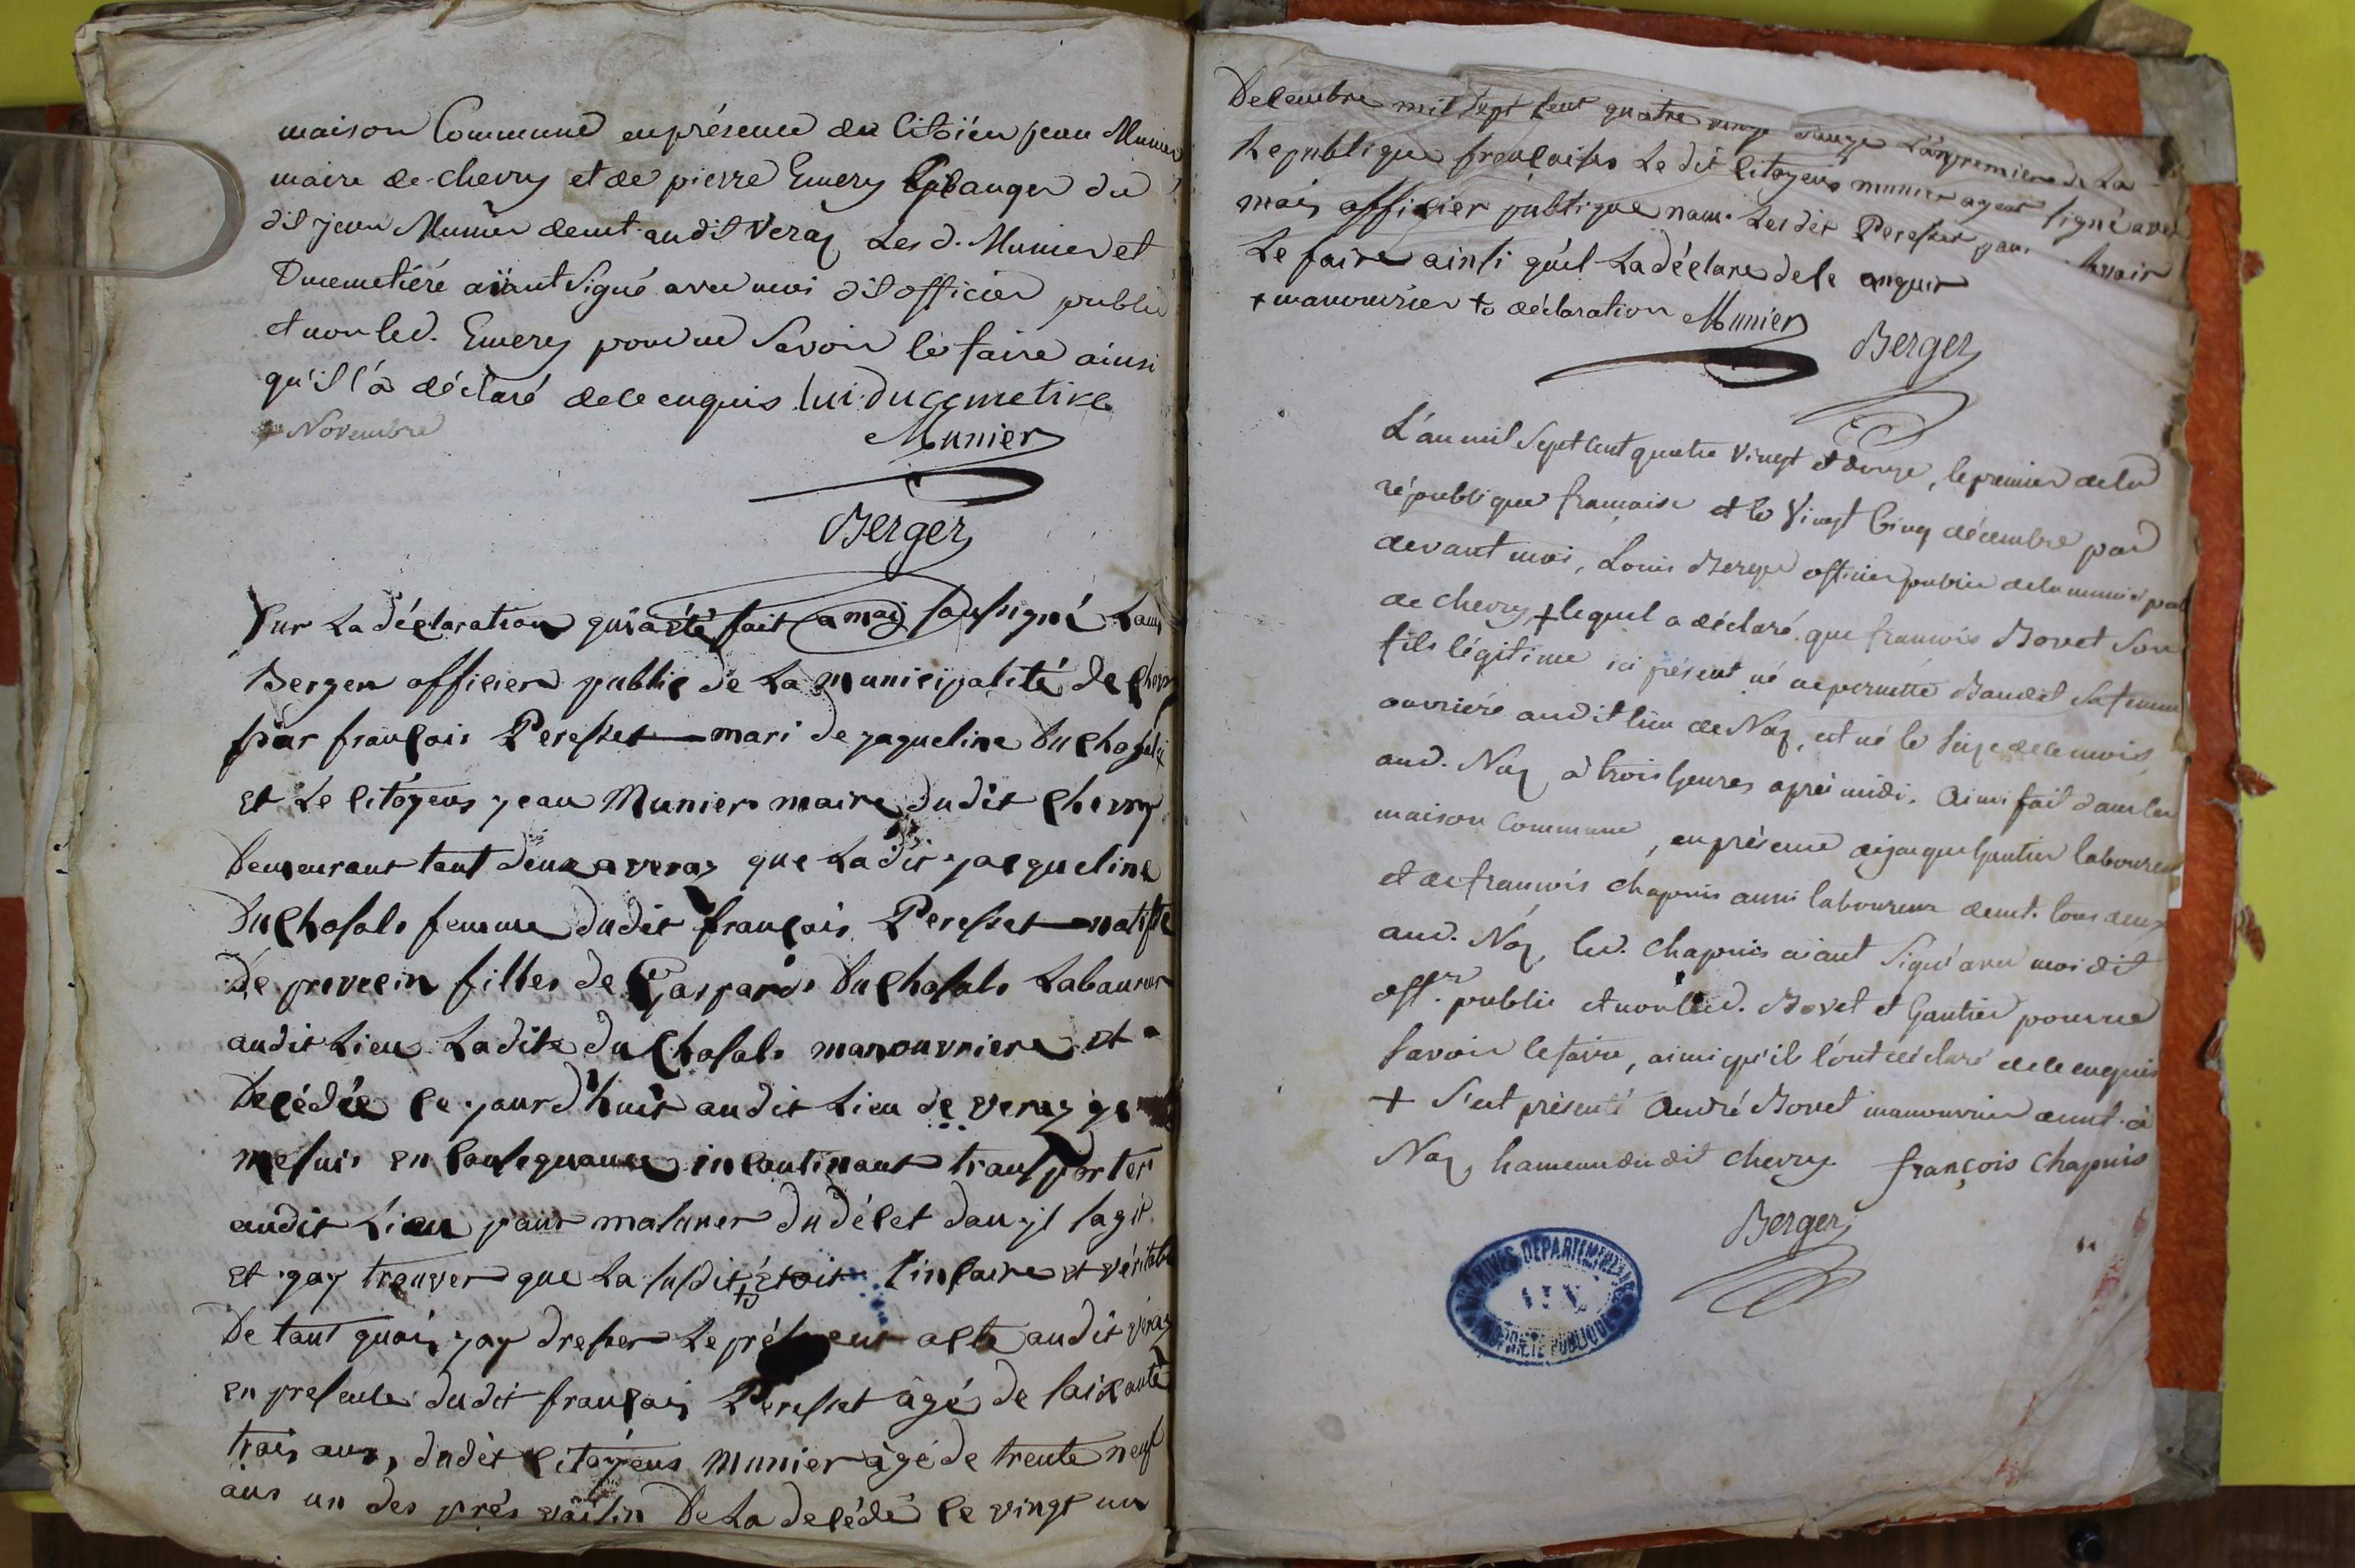 maison Commune en présence du Citoïen jean Munier
maire de chevry et de pierre Emery Granger du
dit jean Munier demt. audit Veraz Les d. Munier et
Ducemetiére aïant Signé avec moi dit officier public
et non led. Emery pour ne Savoir le faire ainsi
qu'il l'a déclaré de ce enquis lui ducemetire
+ Novembre
Munier
Berger
Sur La déclaration qui a été fait a moy soussigné Louis
Berger officier public de La municipalité de Chevry
par françois Peresset mari de jaqueline
et Le Citoyens jean Munier maire dudit Chevry
Demeurant tout deux a veraz que La dit jacqueline
Duchosals femme dudit françois Peresset native
De prevecin filles de Gaspards Duchosals Laboureur
audit Lieu Ladite duchosals manouvriere et
Decédée ce jourd'huit audit Lieu de veraz je
me suis en Consequance incontinant transporter
audit Lieu pour masurer du décet dont jl sagit
et jay trouver que La susdit étoit Sincaire et véritable
De tout quoi, jay dresser Le présent acte audit véraz
en presence dudit françois Peresset âgé de soixante
trois ans, dudit Citoyens Munier âgé de trente neuf
ans un des prés voisin De La decédé ce vingt un
Decembre mil sept cent quatre vingt douze L'an premier de La
Republique françoises Le dit Citoyens munier ayant signé avec
moi officier publique non Les dit Peresset pour savoir
Le faire ainsi qu'il La déclare de ce enquis
+ manouvrier + déclaration Munier
Berger
L'an mil Sept Cent quatre Vingt et douze, le premier de la
république françoise et le Vingt Cinq décembre par
devant moi, Louis Berger officier public de la municipalité
de chevry + lequel a déclaré que francois Bovet Son
fils légitime ici présent né de pernette Baudet Sa femme
ouvriére audit lieu de Naz, est né le Seize de ce mois
aud. Naz à trois heures après midi. Ainsi fait dans la
maison Commune, en présence de jaque Gautier laboureur
et de francois chapuis aussi laboureur demt. tous deux
aud. Naz led. Chapuis aïant Signé avec moi dit
offr. public et non led. Bovet et Gautier pour ne
Savoir le faire, ainsi qu'ils l'ont déclaré de ce enquis
+ S'est présenté André Bovet manouvrier demt. à
Naz hameau dudit chevry. françois chapuis
Berger
ARCHIVES DEPARTEMENTALES
AIN
PROPRIETE PUBLIQUE